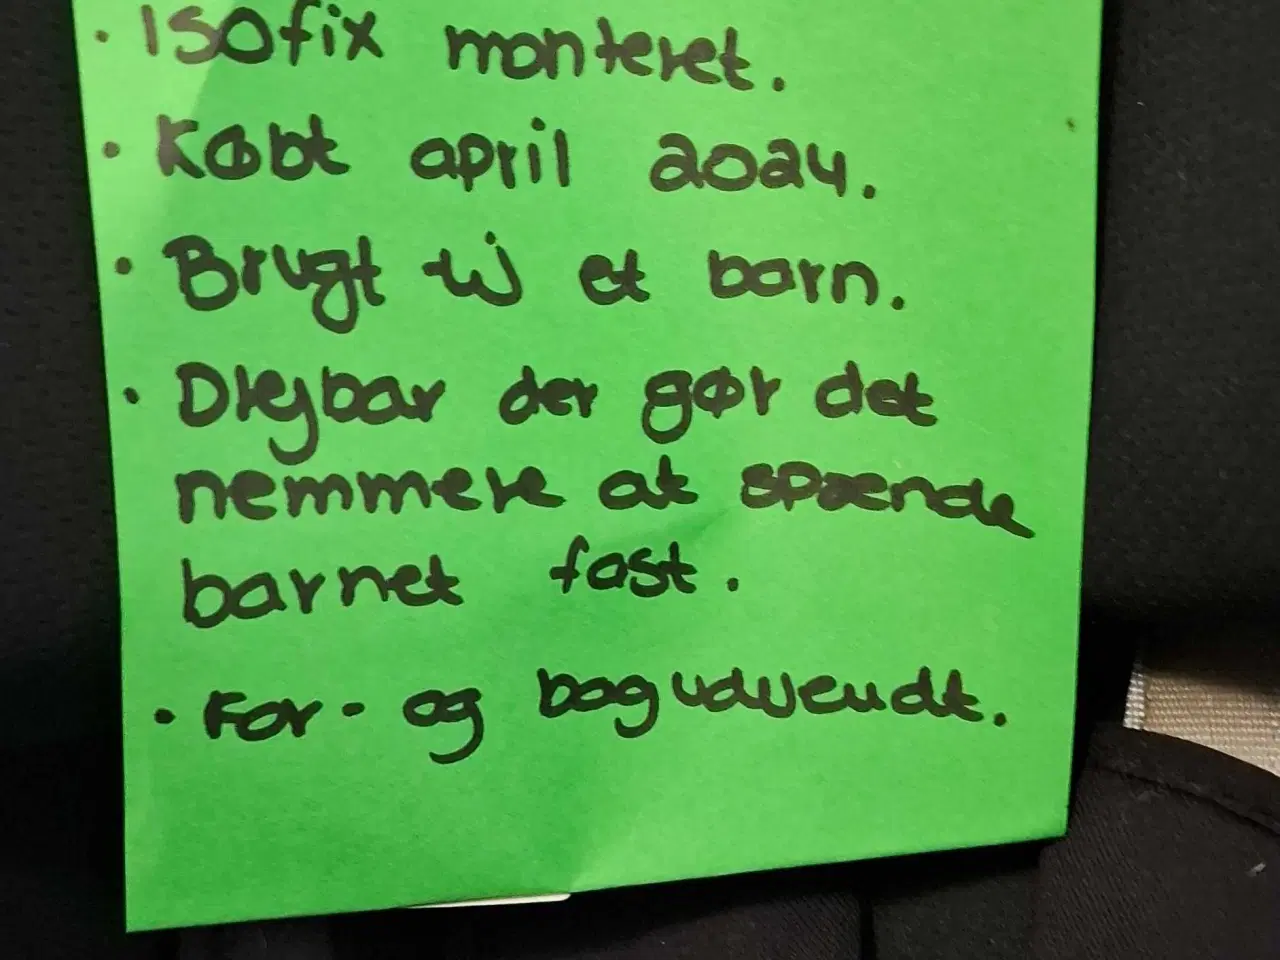 · ISOfix monteret.
· Købt april 2024.
· Brugt til et barn.
· Drejbar der gør det
nemmere at spænde
barnet fast.
· For- og bagudvendt.